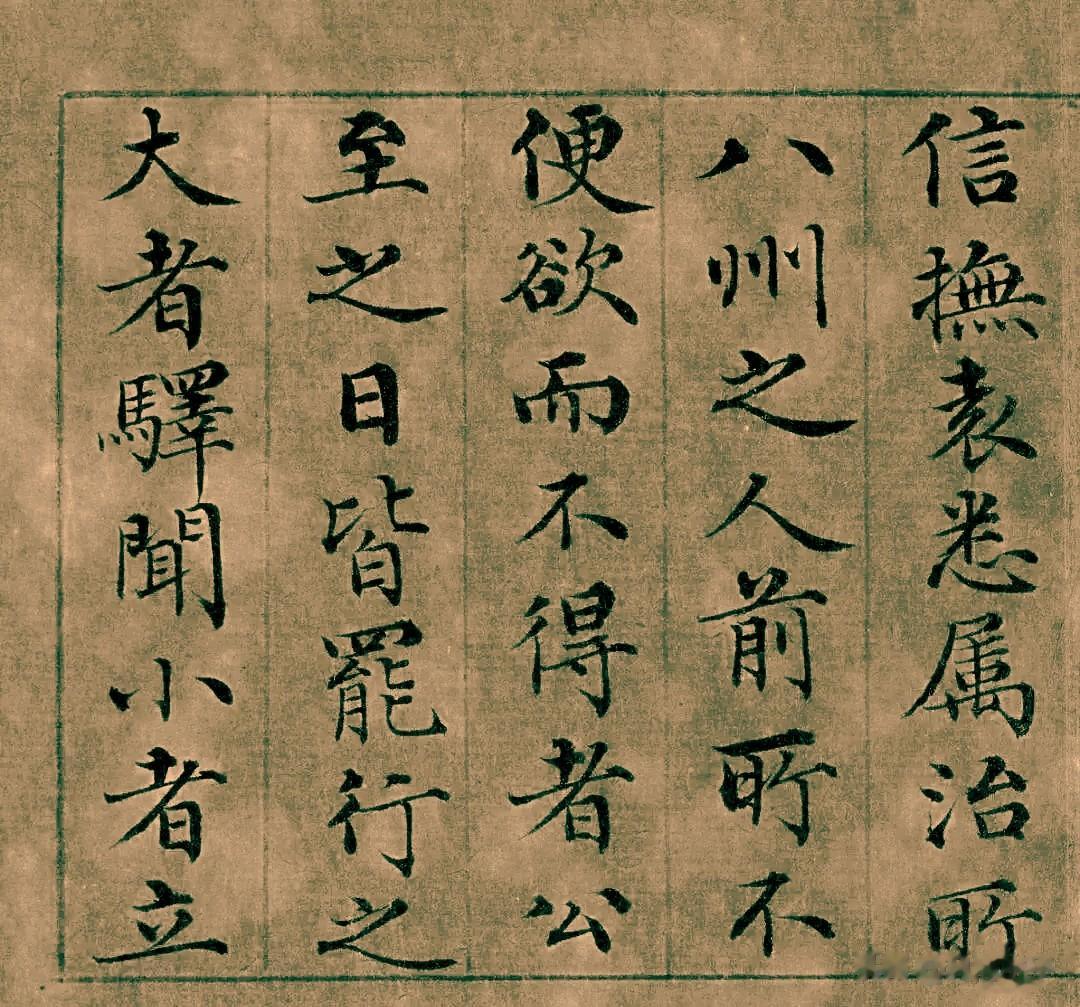 信撫袁悉属治所
八州之人前所不
便欲而不得者公
至之日皆罷行之
大者驛聞小者立